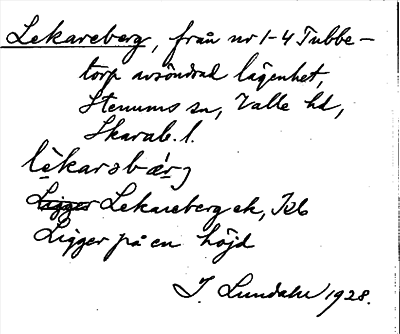 Lekareberg, från nr 1-4 Tubbe-
torp avsöndrad lägenhet,
Stenums sn, Valle hd,
Skarab. l.
Lekareberg ek,
Ligger på en höjd
J. Lundahl 1928.